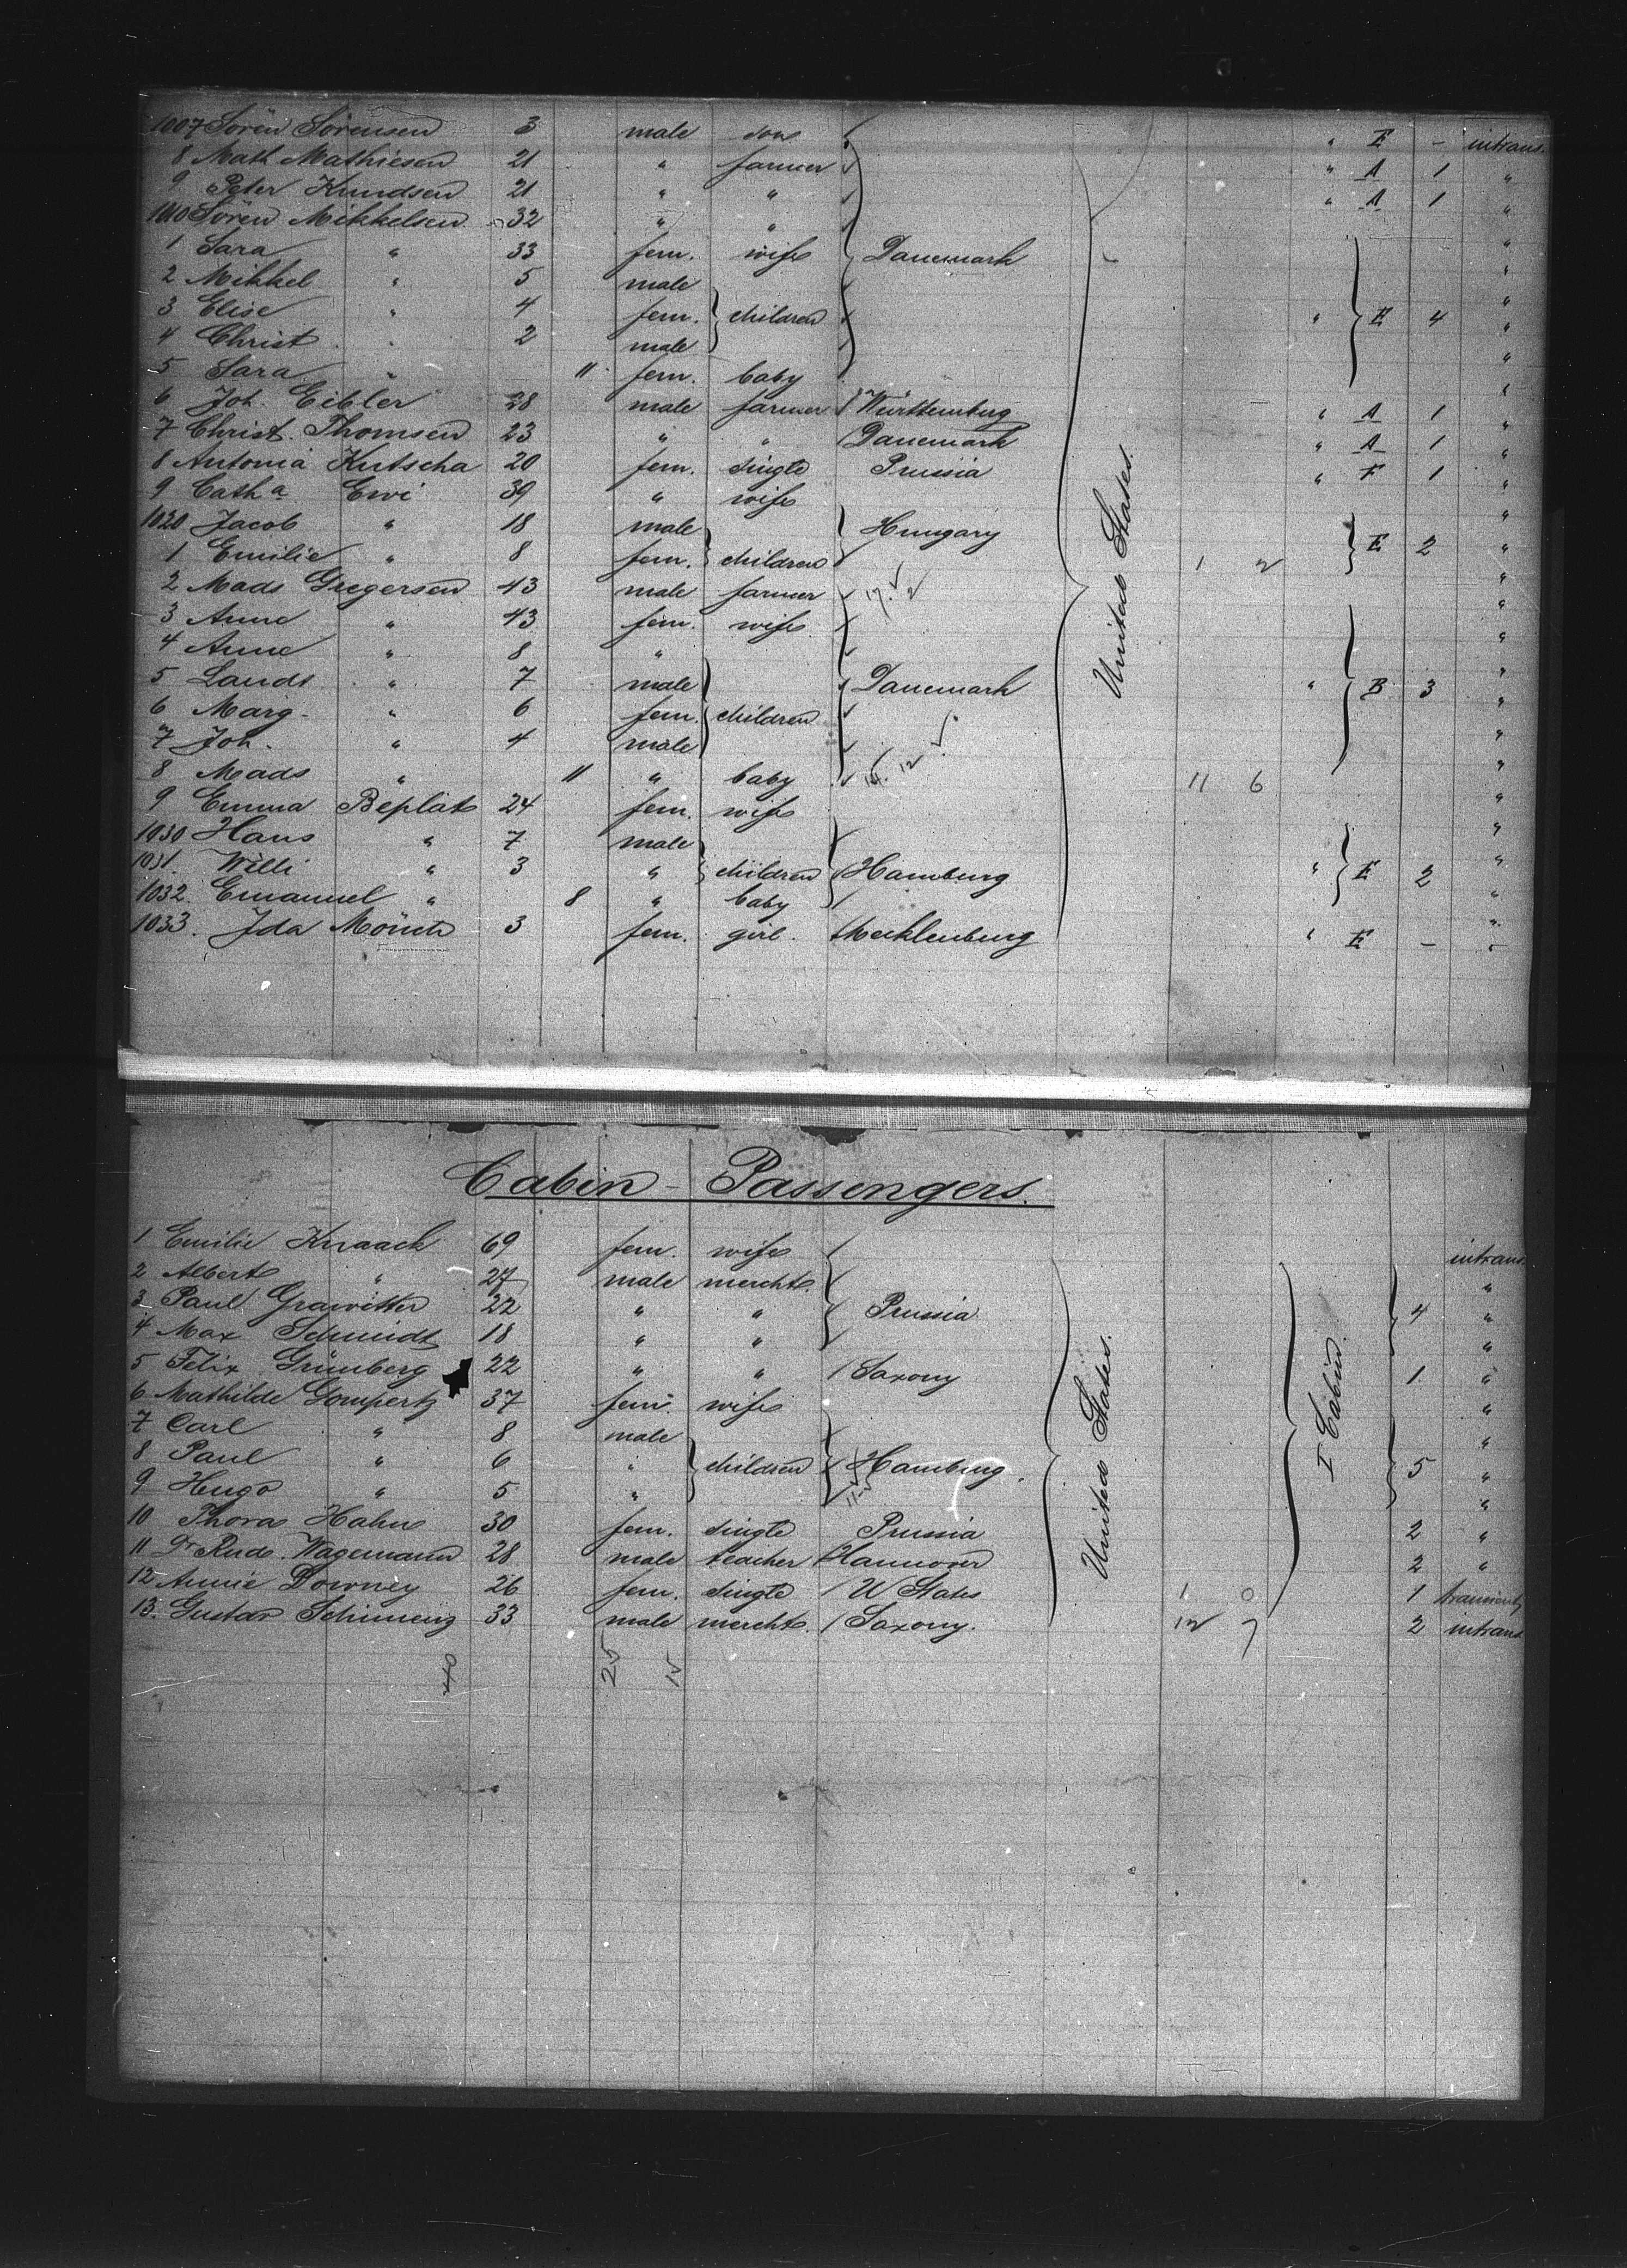 1007 Sören Sörensen 3 male son " E - intrans.
8 Math Mathiesen 21 " farmer " A 1 "
9 Peter Knudsen 21 " " " A 1 "
1010 Sören Mikkelsen 32 " " "
1 Sara " 33 fem. wife Danemark "
2 Mikkel " 5 male "
3 Elise " 4 fem. children " E 4 "
4 Christ " 2 male "
5 Sara " 11 fem. baby "
6 Joh. Eibler 28 male farmer Württemburg " A 1 "
7 Christ. Thomsen 23 " " Danemark " A 1 "
8 Antonia Kutscha 20 fem. single Prussia " F 1 "
9 Cath a Ervi 39 " wife "
1020 Jacob " 18 male Hungary E 2 "
1 Emilie " 8 fem. children 1 2 "
2 Mads Gregersen 43 male farmer "
3 Anne " 43 fem. wife "
4 Anne " 8 " "
5 Lauds " 7 male Danemark " B 3 "
6 Marg. " 6 fem. children "
7 Joh. " 4 male "
8 Mads " 11 " baby 11 6 "
9 Emma Beplat 24 fem. wife "
1030 Hans " 7 male "
1031. Willi " 3 " children Hamburg " E 2 "
1032. Emanuel " 8 " baby "
1033. Ida Mönch 3 fem. girl. Mecklenburg " E - "
United States.
Cabin - Passengers.
1 Emilie Knaack 69 fem. wife intrans.
2 Albert " 27 male mercht. "
3 Paul Grawitter 22 " " Prussia 4 "
4 Max Schmidt 18 " " "
5 Felix Grünberg 22 " " Saxony 1. "
6 Mathilde Gompertz 37 fem. wife "
7 Carl " 8 male "
8 Paul " 6 " children Hamburg. 5 "
9 Hugo " 5 " "
10 Thora Hahn 30 fem. single Prussia 2 "
11 Dr Rud. Wagemann 28 male teacher Hannover 2 "
12 Annie Downey 26 fem. single U States 1 0 1 transient
13. Gustav Schimenz 33 male mercht. Saxony. 12 7 2 intrans.
United States.
I Cabin.
40 25 15